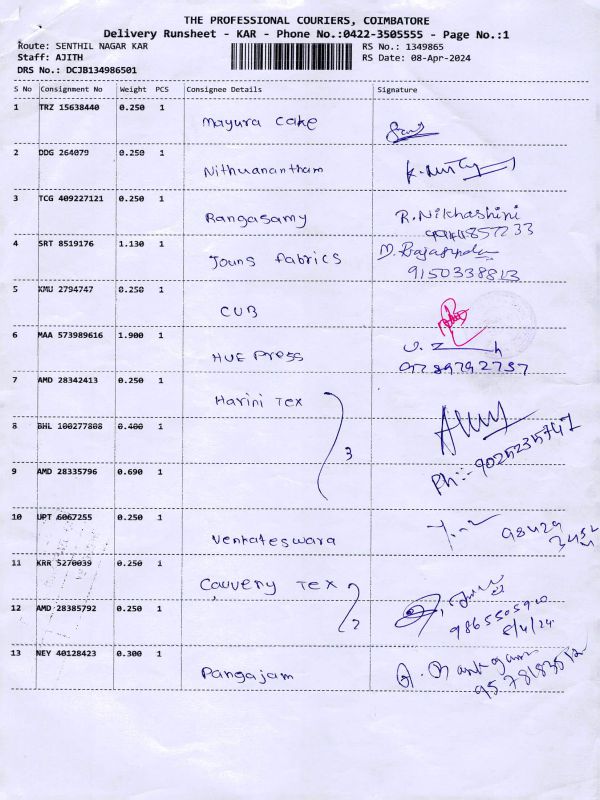 THE PROFESSIONAL COURIERS, COIMBATORE
Delivery Runsheet - KAR - Phone No.:0422-3505555 - Page No.:1
Route: SENTHIL NAGAR KAR RS No.: 1349865
Staff: AJITH RS Date: 08-Apr-2024
DRS No.: DCJB134986501
S No Consignment No Weight PCS Consignee Details Signature
1 TRZ 15638440 0.250 1
Mayura Cake
2 DDG 264079 0.250 1
Nithyanantham
3 TCG 409227121 0.250 1
Rangasamy R. Nikhashini
4 SRT 8519176 1.130 1
Jouns fabrics
9150338813
5 KMU 2794747 0.250 1
CUB
6 MAA 573989616 1.900 1
HUE Press
9789792737
7 AMD 28342413 0.250 1
Harini Tex
8 BHL 100277808 0.400 1
3
Ph:- 9025235747
9 AMD 28335796 0.690 1
10 UPT 6067255 0.250 1
Venkateswara 98429
11 KRR 5270039 0.250 1
Cauvery Tex
12 AMD 28385792 0.250 1
2
9865505900
8/4/24
13 NEY 40128423 0.300 1
Pangajam